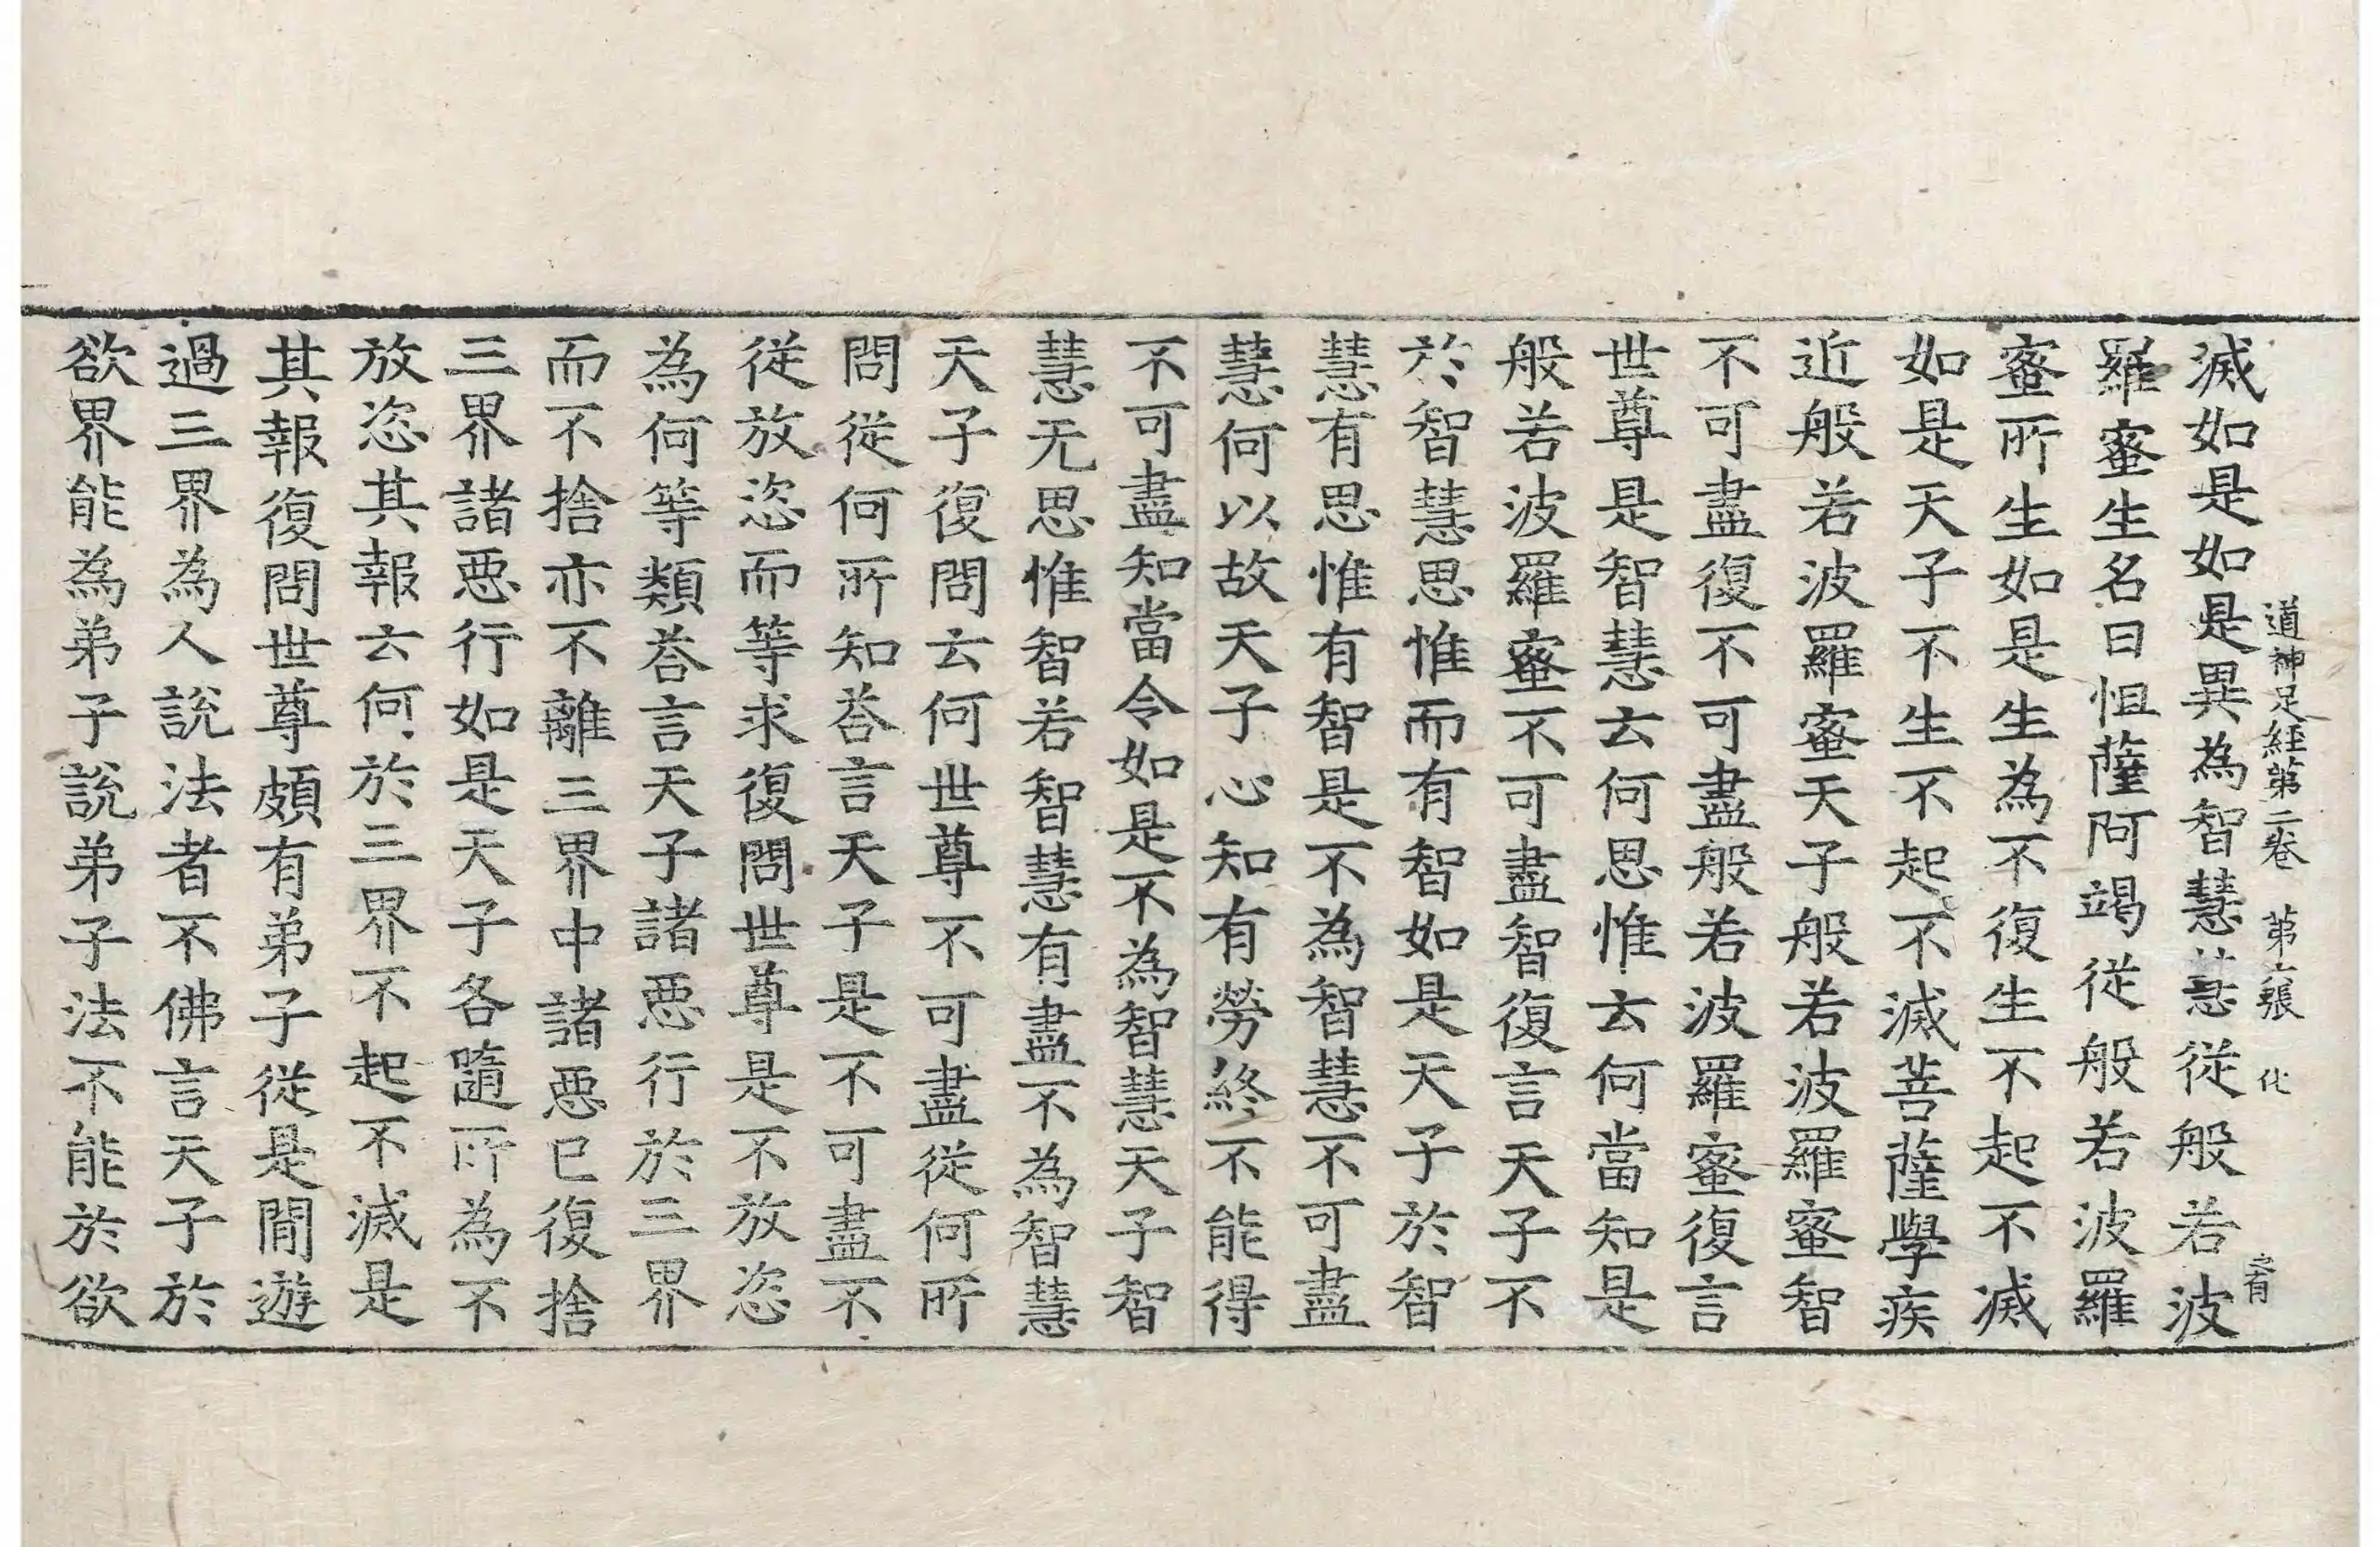 道神足経第二卷　第六張　化
滅如是如是異為智慧慧從般若波
羅蜜生名曰怛薩阿竭從般若波羅
蜜所生如是生為不復生不起不滅
如是天子不生不起不滅菩薩學疾
近般若波羅蜜天子般若波羅蜜智
不可盡復不可盡般若波羅蜜復言
世尊是智慧云何思惟云何當知是
般若波羅蜜不可盡智復言天子不
於智慧思惟而有智如是天子於智
慧有思惟有智是不為智慧不可盡
慧何以故天子心知有勞終不能得
不可盡知當令如是不為智慧天子智
慧无思惟智若智慧有盡不為智慧
天子復問云何世尊不可盡從何所
問從何所知荅言天子是不可盡不
從放恣而等求復問世尊是不放恣
為何等類荅言天子諸惡行於三界
而不捨亦不離三界中諸惡已復捨
三界諸惡行如是天子各隨所為不
放恣其報云何於三界不起不滅是
其報復問世尊頗有弟子從是間遊
過三界為人說法者不佛言天子於
欲界能為弟子說弟子法不能於欲